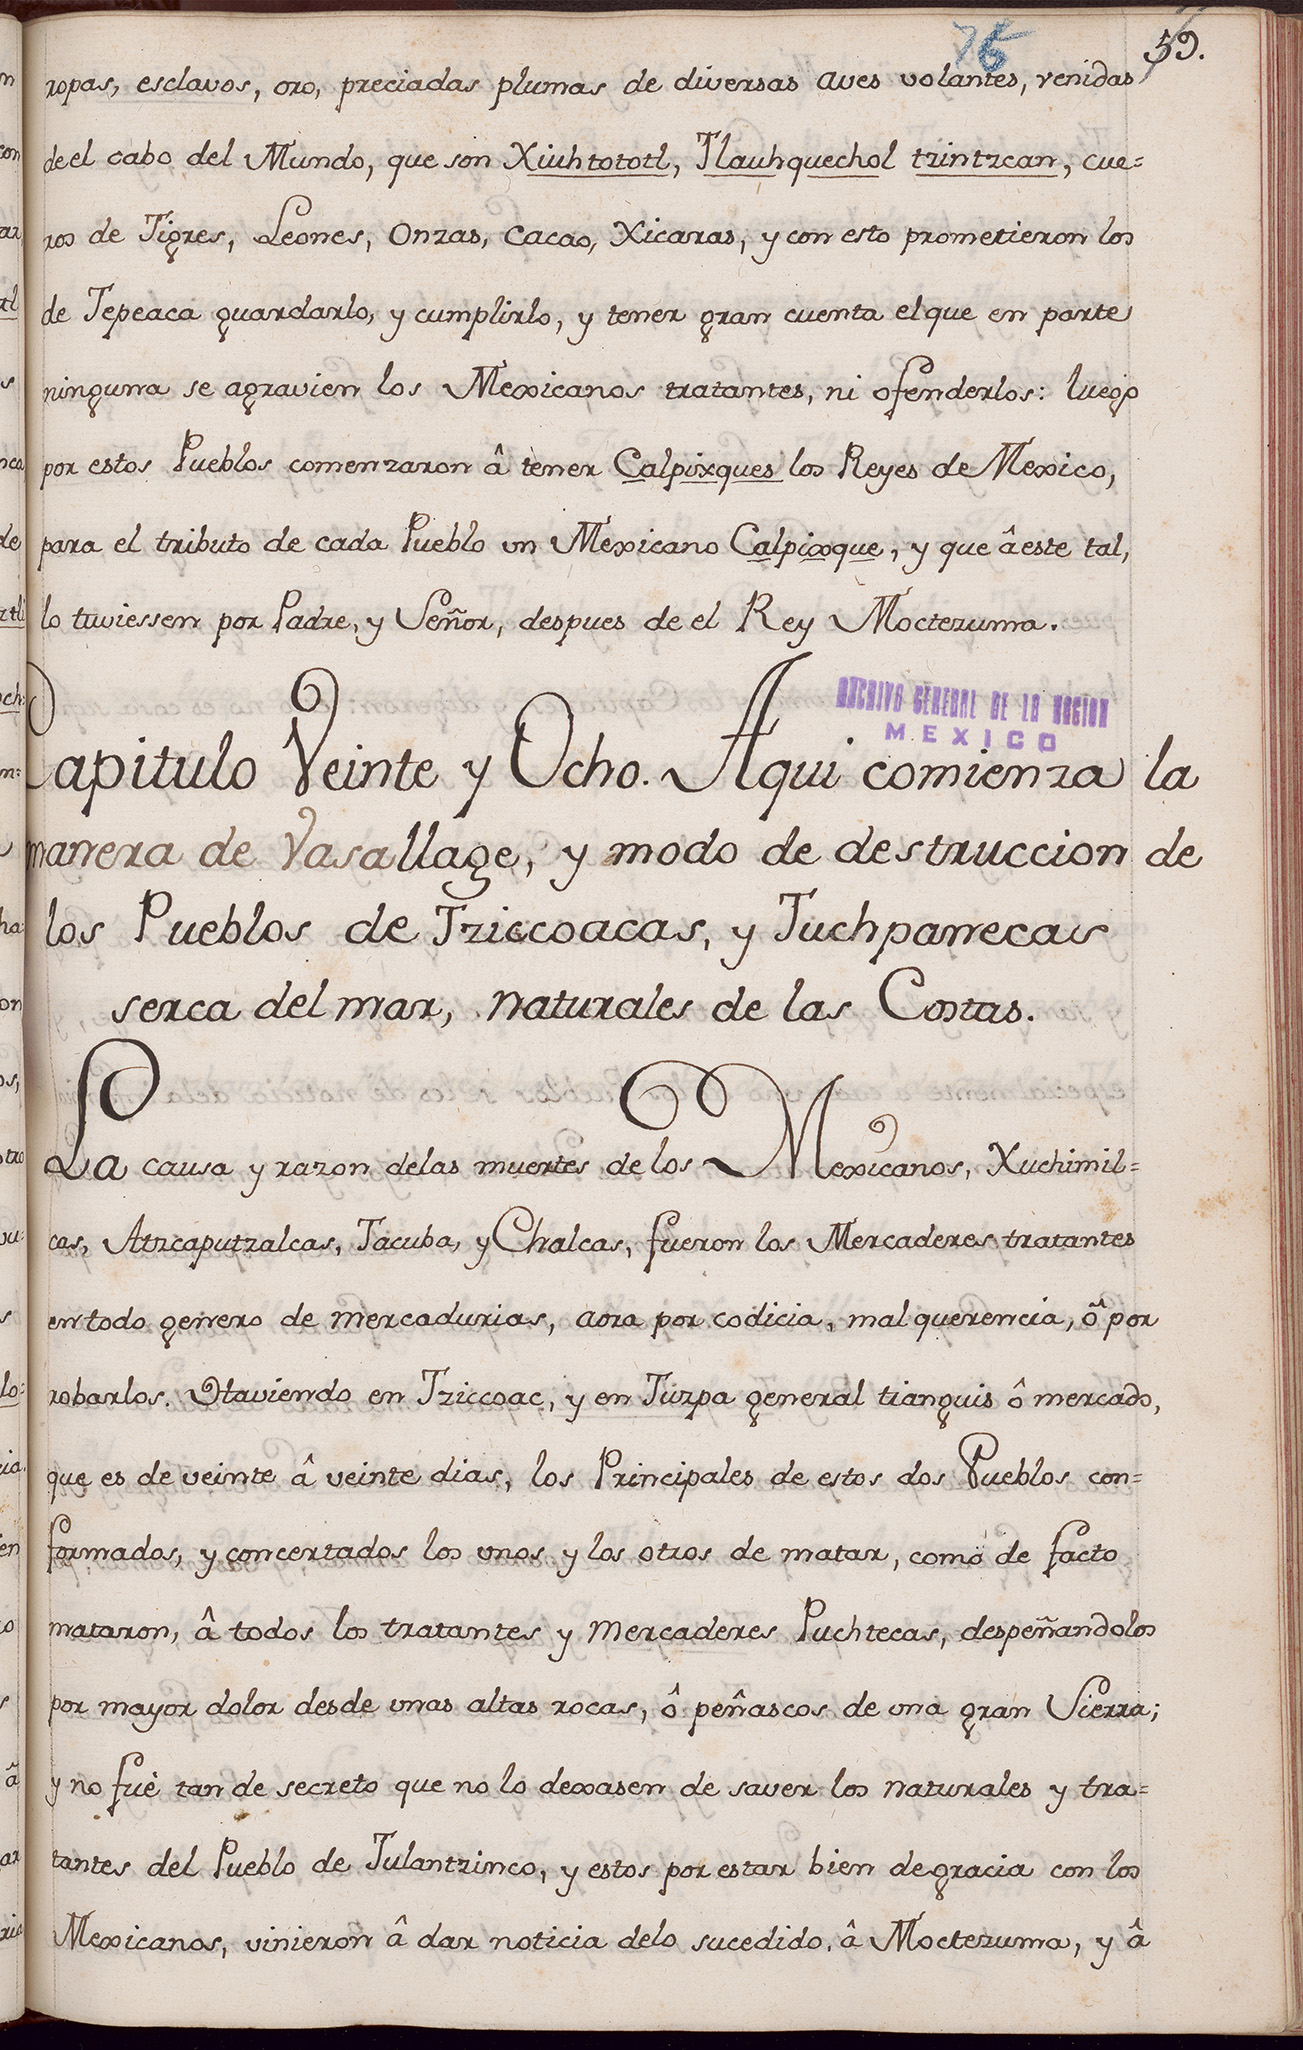 76 59.
ropas, esclavos, oro, preciadas plumas de diversas aves volantes, venidas
de el cabo del Mundo, que son Xiuhtototl, Tlauhquechol tzintzcan, cue=
ros de Tigres, Leones, Onzas, Cacao, Xicaras, y con esto prometieron los
de Tepeaca guardarlo, y cumplirlo, y tener gran cuenta el que en parte
ninguna se agravien los Mexicanos tratantes, ni ofenderlos: luego
por estos Pueblos comenzaron â tener Calpixques los Reyes de Mexico,
para el tributo de cada Pueblo un Mexicano Calpixque, y que â este tal,
lo tuviessen por Padre, y Señor, despues de el Rey Moctezuma.
ARCHIVO GENERAL DE LA NACION
MEXICO
Capitulo Veinte y Ocho. Aqui comienza la
manera de Vasallage, y modo de destruccion de
los Pueblos de Tziccoacas, y Tuchpanecas
serca del mar, naturales de las Costas.
La causa y razon delas muertes de los Mexicanos, Xuchimil=
cas, Atzcaputzalcas, Tacuba, y Chalcas, fueron los Mercaderes tratantes
en todo genero de mercadurias, aora por codicia, mal querencia, ô por
robarlos. Haviendo en Tziccoac, y en Tuzpa general tianguis ô mercado,
que es de veinte â veinte dias, los Principales de estos dos Pueblos con=
formados, y concertados los unos y los otros de matar, como de facto
mataron, â todos los tratantes y Mercaderes Puchtecas, despeñandolos
por mayor dolor desde unas altas rocas, ô peñascos de una gran Sierra;
y no fué tan de secreto que no lo dexasen de saver los naturales y tra=
tantes del Pueblo de Tulantzinco, y estos por estar bien de gracia con los
Mexicanos, vinieron â dar noticia delo sucedido, â Moctezuma, y â